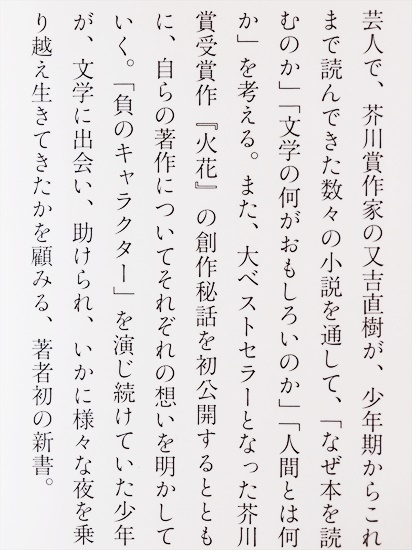 芸人で、芥川賞作家の又吉直樹が、少年期からこれ
まで読んできた数々の小説を通して、「なぜ本を読
むのか」「文学の何がおもしろいのか」「人間とは何
か」を考える。また、大ベストセラーとなった芥川
賞受賞作『火花』の創作秘話を初公開するととも
に、自らの著作についてそれぞれの想いを明かして
いく。「負のキャラクター」を演じ続けていた少年
が、文学に出会い、助けられ、いかに様々な夜を乗
り越え生きてきたかを顧みる、著者初の新書。